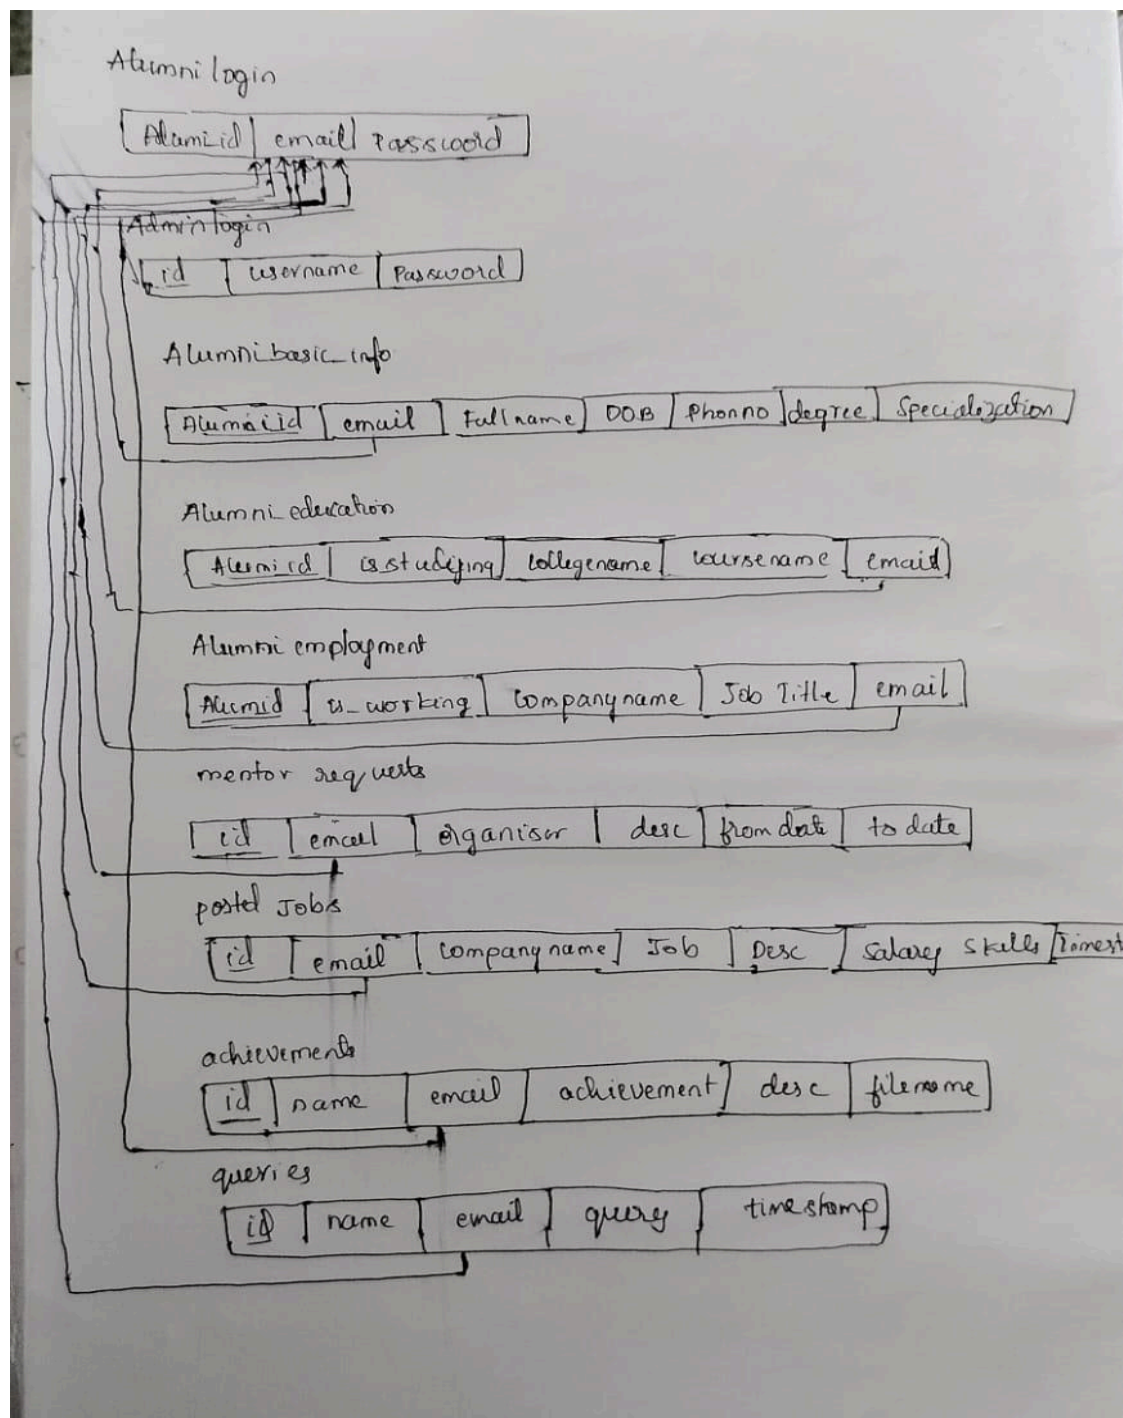 Alumni login
Alumi_id email Password
Admin login
id username Password
Alumni basic_info
Alumni id email Full name DOB Phon no degree Specialization
Alumni_education
Alumni id is studying collegename coursename email
Alumni employment
Alumid is_working Company name Job Title email
mentor requests
id email organiser desc from date to date
posted Jobs
id email Company name Job Desc Salary Skills Timest
achievements
id name email achievement desc filename
queries
id name email query timestamp